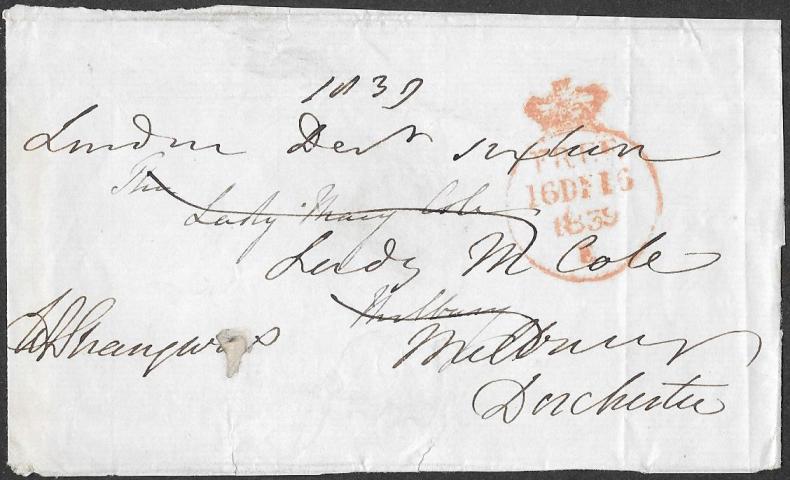 1839
London Decr sixteen
The
Lady Mary Cole
Lady M Cole
Melbury
WFStrangways
Melbury
Dorchester
FREE
16DE16
1839